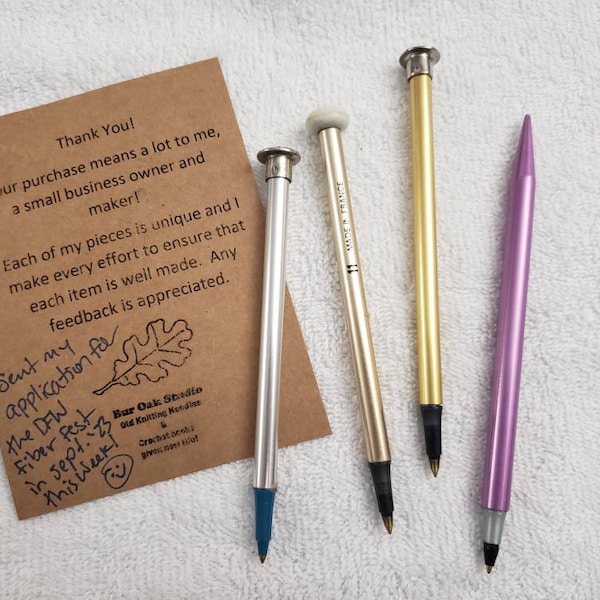 Thank You!
our purchase means a lot to me,
a small business owner and
maker!
Each of my pieces is unique and I
make every effort to ensure that
each item is well made. Any
feedback is appreciated.
Sent my
application for
the DFW
Fiber Fest
in Sept. '23
this week!
Bur Oak Studio
Old Knitting Needles
&
Crochet hooks
given new life!
MADE IN FRANCE
11